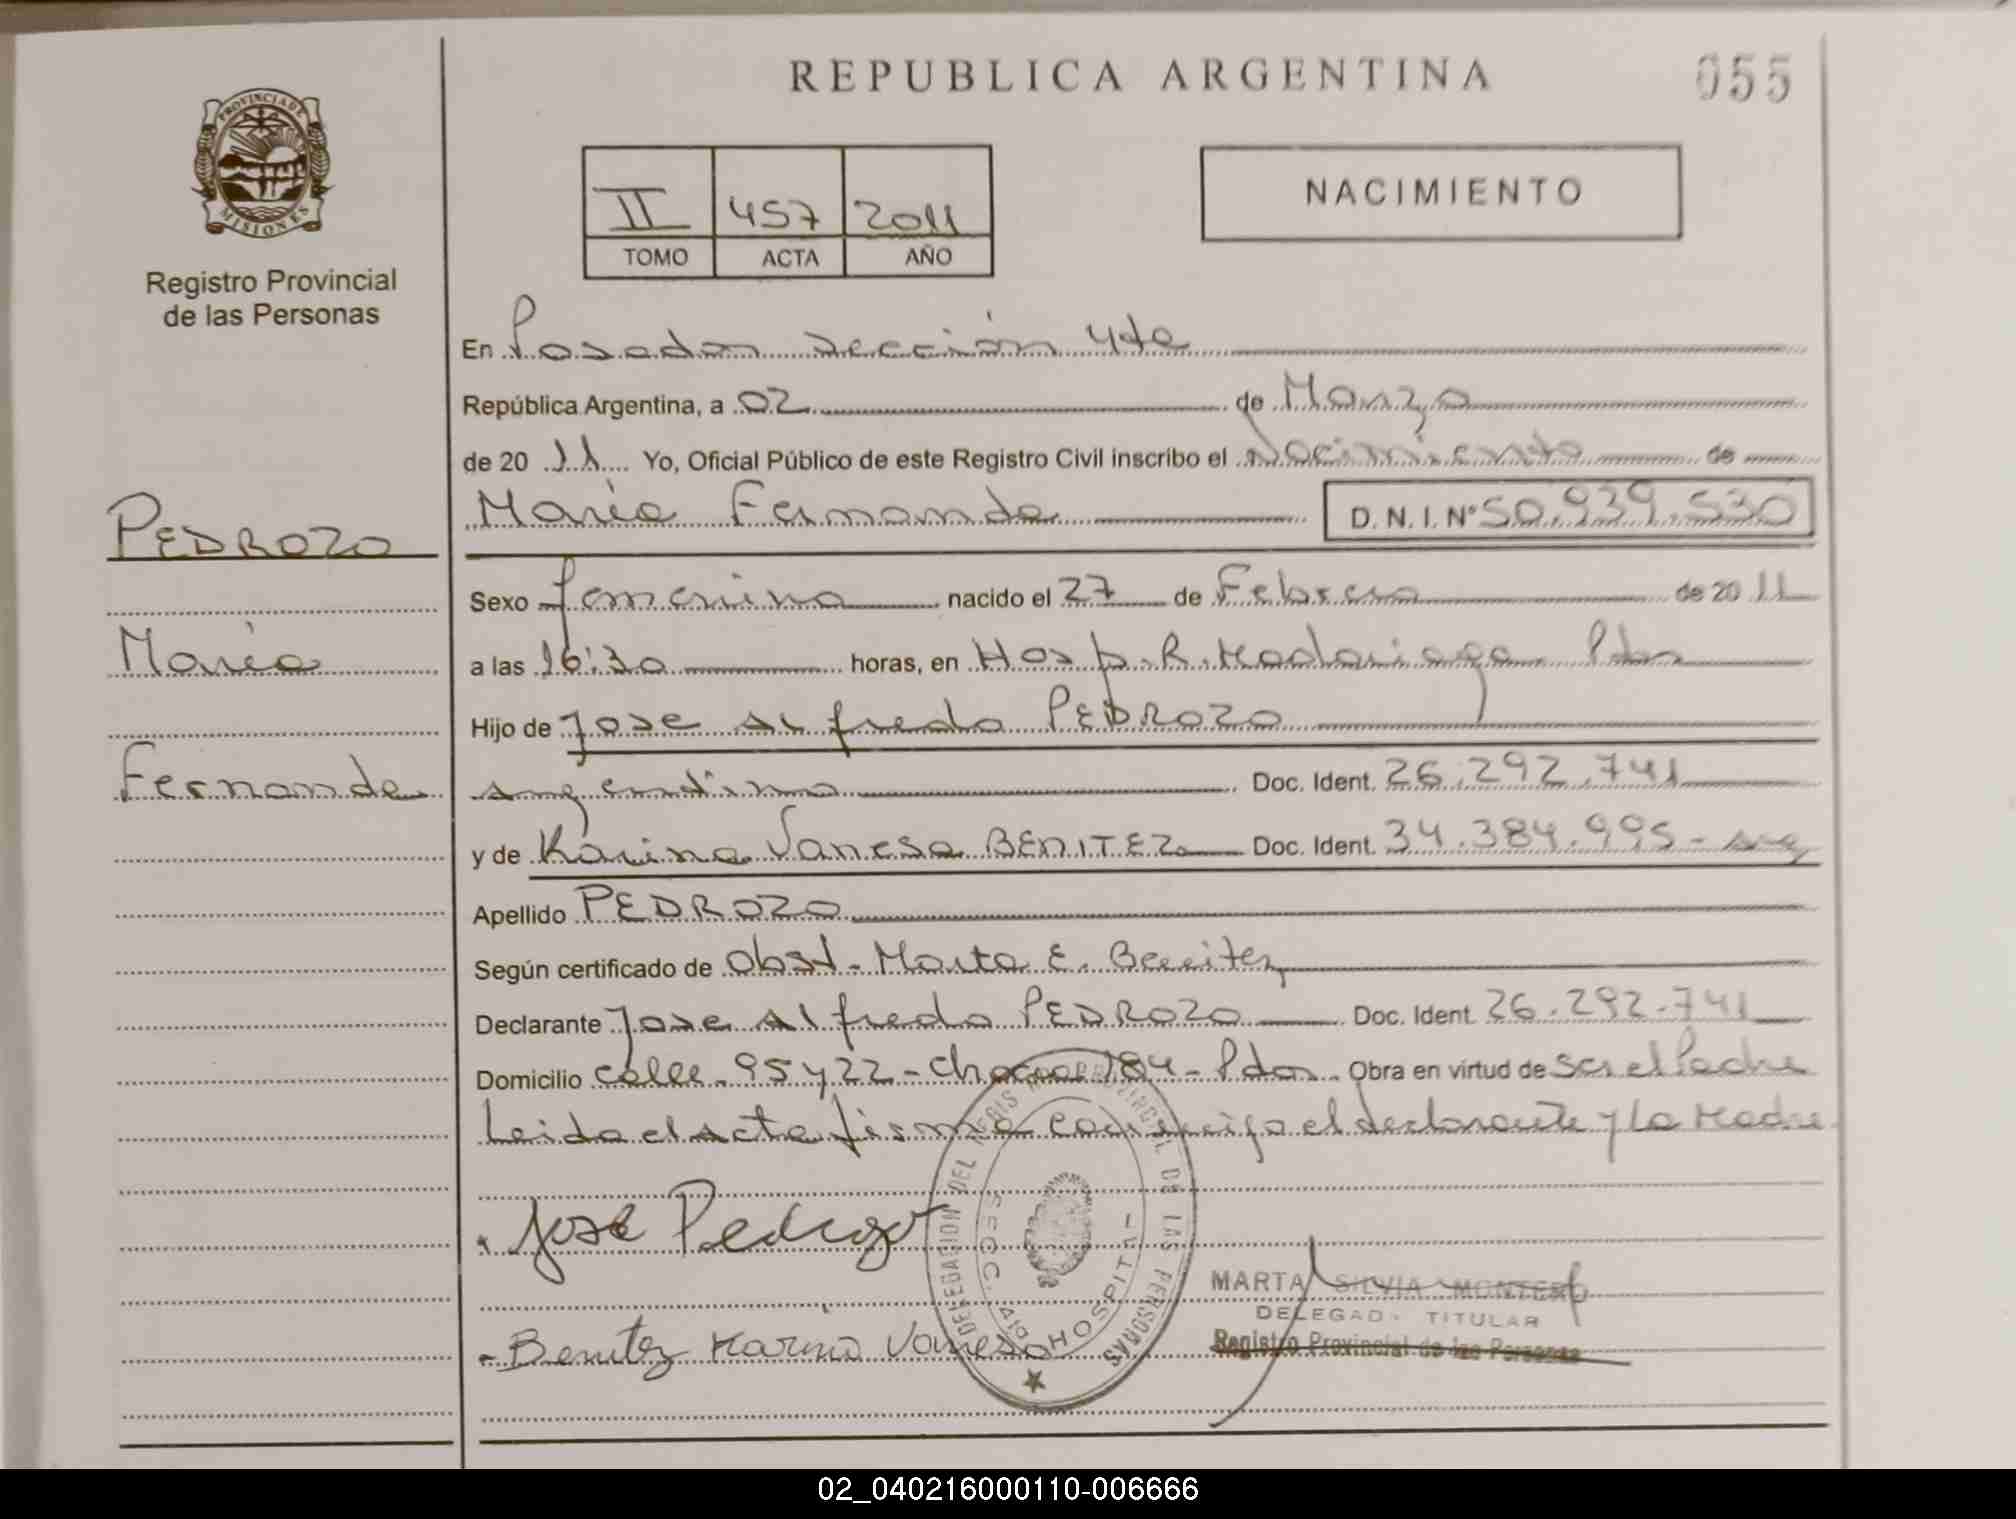 REPUBLICA ARGENTINA
055
PROVINCIA DE
MISIONES
Registro Provincial
de las Personas
II 457 2011
TOMO ACTA AÑO
NACIMIENTO
En Posadas sección 4ta
República Argentina, a 02 de Marzo
de 20 11 Yo, Oficial Público de este Registro Civil inscribo el Nacimiento de
María Fernanda D.N.I.Nº 50.939.530
PEDROZO
María
Fernanda
Sexo femenino nacido el 27 de Febrero de 20 11
a las 16:30 horas, en Hosp. R. Madariaga Pdas
Hijo de Jose Alfredo PEDROZO
argentino Doc. Ident. 26.292.741
y de Karina Vanesa BENITEZ Doc. Ident. 34.384.995 - arg
Apellido PEDROZO
Según certificado de Obst. Marta E. Benitez
Declarante Jose Alfredo PEDROZO Doc. Ident. 26.292.741
Domicilio calle 95 y 22 - Chacra 184 - Pdas. Obra en virtud de ser el Padre
Leida el acta firma conmigo el declarante y La Madre
José Pedrozo
Benitez Karina Vanesa
DELEGACION DEL REGISTRO PROVINCIAL DE LAS PERSONAS
SECC. 4ta HOSPITAL
MARTA SILVIA MONTERO
DELEGADA TITULAR
Registro Provincial de las Personas
02_040216000110-006666